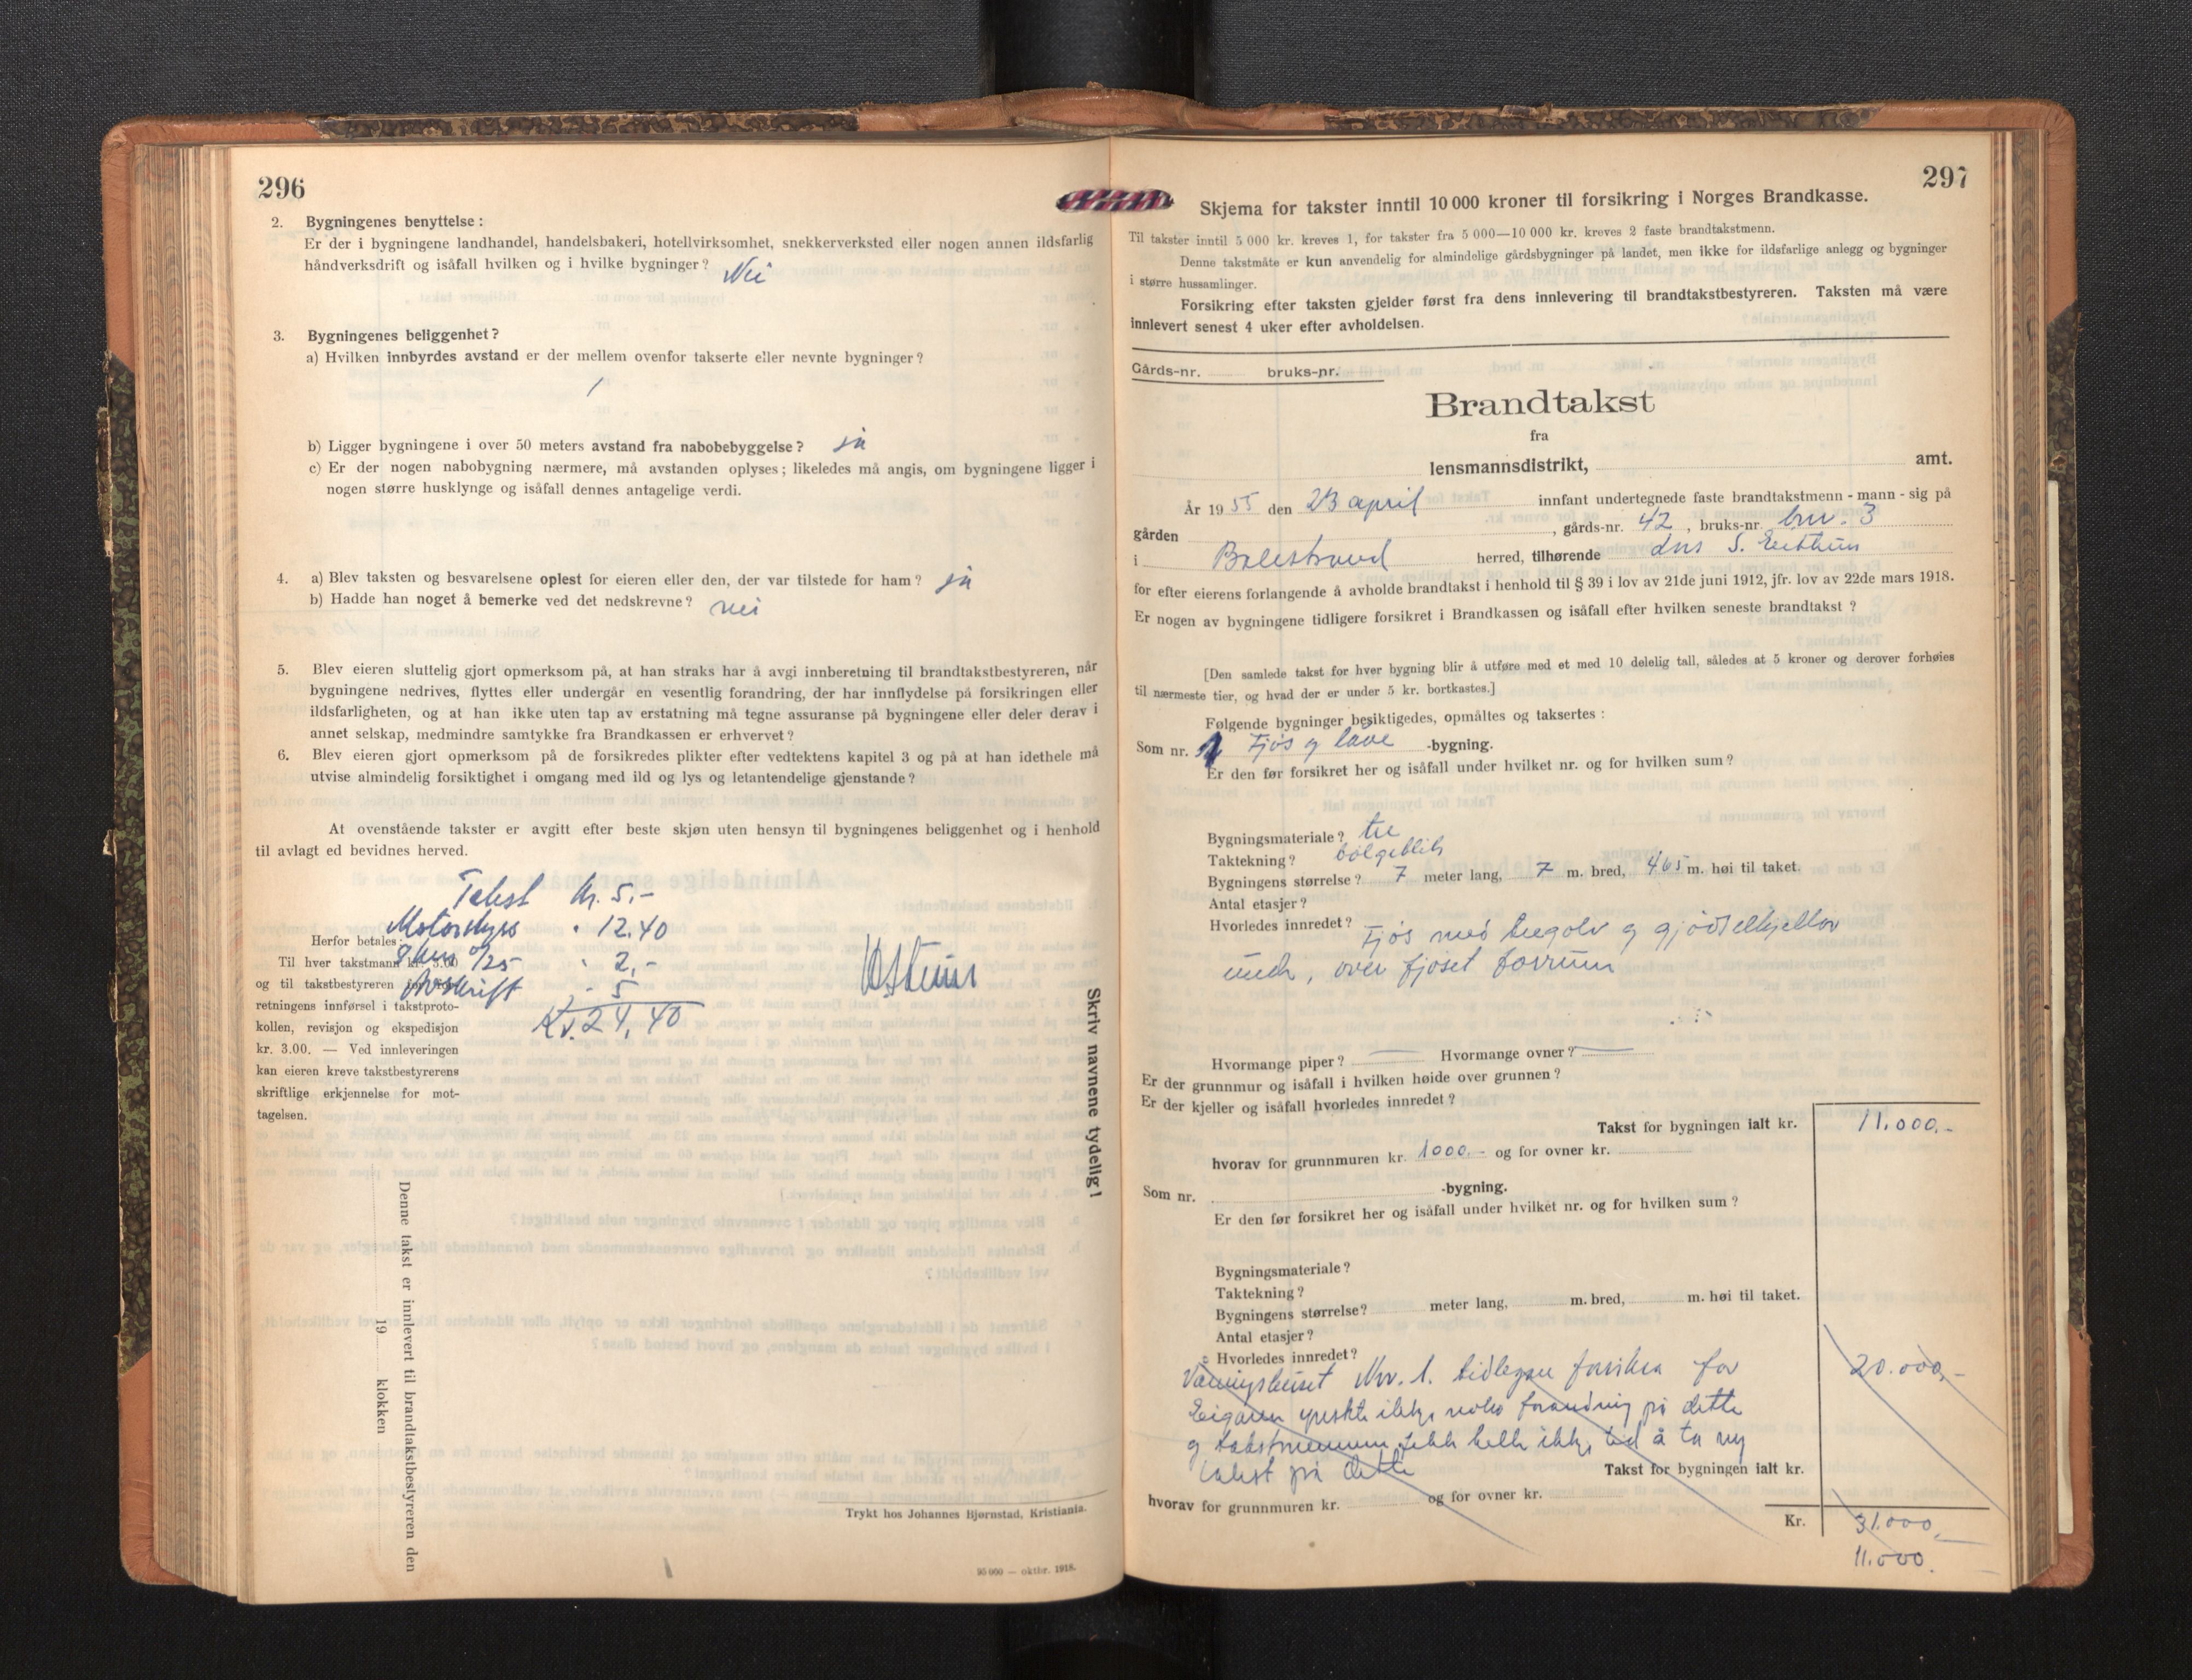 296
2. Bygningenes benyttelse :
Er der i bygningene landhandel, handelsbakeri, hotellvirksomhet, snekkerverksted eller nogen annen ildsfarlig
håndverksdrift og isåfall hvilken og i hvilke bygninger? Nei
3. Bygningenes beliggenhet?
a) Hvilken innbyrdes avstand er der mellem ovenfor takserte eller nevnte bygninger?
b) Ligger bygningene i over 50 meters avstand fra nabobebyggelse? ja
c) Er der nogen nabobygning nærmere, må avstanden oplyses; likeledes må angis, om bygningene ligger i
nogen større husklynge og isåfall dennes antagelige verdi.
4. a) Blev taksten og besvarelsene oplest for eieren eller den, der var tilstede for ham? ja
b) Hadde han noget å bemerke ved det nedskrevne? nei
5. Blev eieren sluttelig gjort opmerksom på, at han straks har å avgi innberetning til brandtakstbestyreren, når
bygningene nedrives, flyttes eller undergår en vesentlig forandring, der har innflydelse på forsikringen eller
ildsfarligheten, og at han ikke uten tap av erstatning må tegne assuranse på bygningene eller deler derav i
annet selskap, medmindre samtykke fra Brandkassen er erhvervet?
6. Blev eieren gjort opmerksom på de forsikredes plikter efter vedtektens kapitel 3 og på at han idethele må
utvise almindelig forsiktighet i omgang med ild og lys og letantendelige gjenstande?
At ovenstående takster er avgitt efter beste skjøn uten hensyn til bygningenes beliggenhet og i henhold
til avlagt ed bevidnes herved.
Takst kr. 5.-
Motorskyss " 12.40
Herfor betales:
Til hver takstmann kr. 3.00
" 2,-
og til takstbestyreren for
Avskrift " 5
retningens innførsel i takstproto-
Kr. 24,40
kollen, revisjon og ekspedisjon
kr. 3.00. — Ved innleveringen
kan eieren kreve takstbestyrerens
skriftlige erkjennelse for mot-
tagelsen.
Skriv navnene tydelig!
Denne takst er innlevert til brandtakstbestyreren den
19 klokken
Trykt hos Johannes Bjørnstad, Kristiania.
95 000 — oktbr. 1918.
297
Skjema for takster inntil 10 000 kroner til forsikring i Norges Brandkasse.
Til takster inntil 5 000 kr. kreves 1, for takster fra 5 000—10 000 kr. kreves 2 faste brandtakstmenn.
Denne takstmåte er kun anvendelig for almindelige gårdsbygninger på landet, men ikke for ildsfarlige anlegg og bygninger
i større hussamlinger.
Forsikring efter taksten gjelder først fra dens innlevering til brandtakstbestyreren. Taksten må være
innlevert senest 4 uker efter avholdelsen.
Gårds-nr. bruks-nr.
Brandtakst
fra
lensmannsdistrikt, amt.
År 1955 den 23 april innfant undertegnede faste brandtakstmenn - mann - sig på
gården , gårds-nr. 42 , bruks-nr. bnr. 3
i Balestrand herred, tilhørende S. Eithun
for efter eierens forlangende å avholde brandtakst i henhold til § 39 i lov av 21de juni 1912, jfr. lov av 22de mars 1918.
Er nogen av bygningene tidligere forsikret i Brandkassen og isåfall efter hvilken seneste brandtakst ?
[Den samlede takst for hver bygning blir å utføre med et med 10 delelig tall, således at 5 kroner og derover forhøies
til nærmeste tier, og hvad der er under 5 kr. bortkastes.]
Følgende bygninger besiktigedes, opmåltes og taksertes :
Som nr. Fjøs og løve -bygning.
Er den før forsikret her og isåfall under hvilket nr. og for hvilken sum?
Bygningsmateriale? tre
Taktekning? bølgeblik
Bygningens størrelse? 7 meter lang, 7 m. bred, 4 65 m. høi til taket.
Antal etasjer?
Hvorledes innredet? Fjøs med tregolv og gjødselkjellar
under, over fjøset forrum
Hvormange piper? — Hvormange ovner? —
Er der grunnmur og isåfall i hvilken høide over grunnen?
Er der kjeller og isåfall hvorledes innredet?
Takst for bygningen ialt kr. 11.000.-
hvorav for grunnmuren kr. 1000.- og for ovner kr.
Som nr. -bygning.
Er den før forsikret her og isåfall under hvilket nr. og for hvilken sum ?
Bygningsmateriale?
Taktekning?
Bygningens størrelse? meter lang, m. bred, m. høi til taket.
Antal etasjer?
Hvorledes innredet?
Våningshuset Nr. 1. tidlegare forsikra for 20.000,-
Eigaren ynskte ikkje noko forandring på dette
og takstmennene fekk heller ikkje tid å ta ny
takst på dette Takst for bygningen ialt kr.
hvorav for grunnmuren kr. og for ovner kr.
Kr. 31.000,-
11.000.